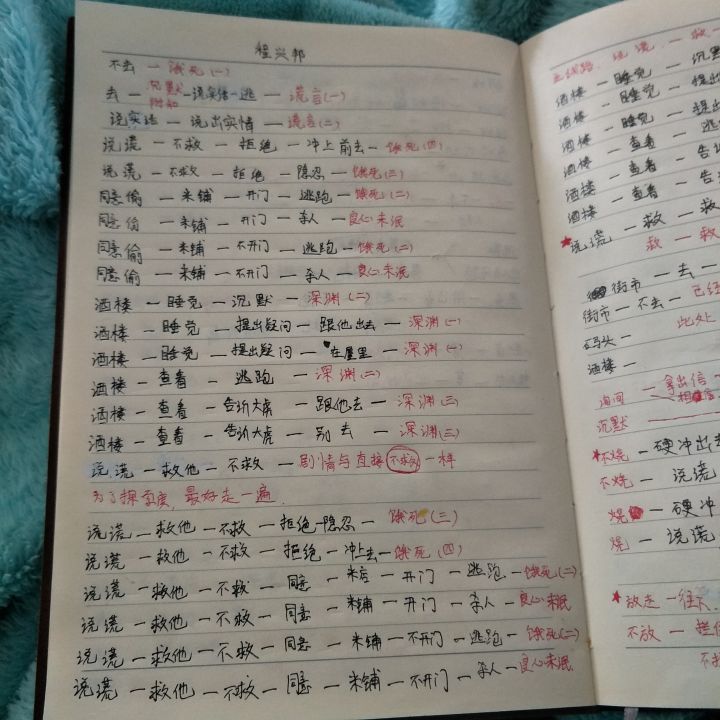 程兴邦
不去 — 饿死(一)
去 — 沉默 附和 — 说实话 — 逃 — 谎言(一)
说实话 — 说出实情 — 谎言(二)
说谎 — 不救 — 拒绝 — 冲上前去 — 饿死(四)
说谎 — 不救 — 拒绝 — 隐忍 — 饿死(三)
同意偷 — 米铺 — 开门 — 逃跑 — 饿死(二)
同意偷 — 米铺 — 开门 — 杀人 — 良心未泯
同意偷 — 米铺 — 不开门 — 逃跑 — 饿死(二)
同意偷 — 米铺 — 不开门 — 杀人 — 良心未泯
酒楼 — 睡觉 — 沉默 — 深渊(二)
酒楼 — 睡觉 — 提出疑问 — 跟他出去 — 深渊(一)
酒楼 — 睡觉 — 提出疑问 — 在屋里 — 深渊(一)
酒楼 — 查看 — 逃跑 — 深渊(二)
酒楼 — 查看 — 告诉大虎 — 跟他去 — 深渊(三)
酒楼 — 查看 — 告诉大虎 — 别去 — 深渊(三)
说谎 — 救他 — 不救 — 剧情与直接不救一样
为了探索度，最好走一遍.
说谎 — 救他 — 不救 — 拒绝 — 隐忍 — 饿死(三)
说谎 — 救他 — 不救 — 拒绝 — 冲上去 — 饿死(四)
说谎 — 救他 — 不救 — 同意 — 米店 — 开门 — 逃跑 — 饿死(二)
说谎 — 救他 — 不救 — 同意 — 米铺 — 开门 — 杀人 — 良心未泯
说谎 — 救他 — 不救 — 同意 — 米铺 — 不开门 — 逃跑 — 饿死(二)
说谎 — 救他 — 不救 — 同意 — 米铺 — 不开门 — 杀人 — 良心未泯
主线路: 说谎 — 救
酒楼 — 睡觉 — 沉默
酒楼 — 睡觉 — 提出
酒楼 — 睡觉 — 提出
酒楼 — 查看 — 逃
酒楼 — 查看 — 告诉
酒楼 — 查看 — 告
★说谎 — 救 — 救
救 — 救
街市 — 去 —
街市 — 不去 — 已经
码头 — 此处
酒楼 —
— 拿出信
沉默
★不烧 — 硬冲出去
不烧 — 说谎
烧 — 硬冲
烧 — 说谎
★放走 — 往
不放 — 拦住